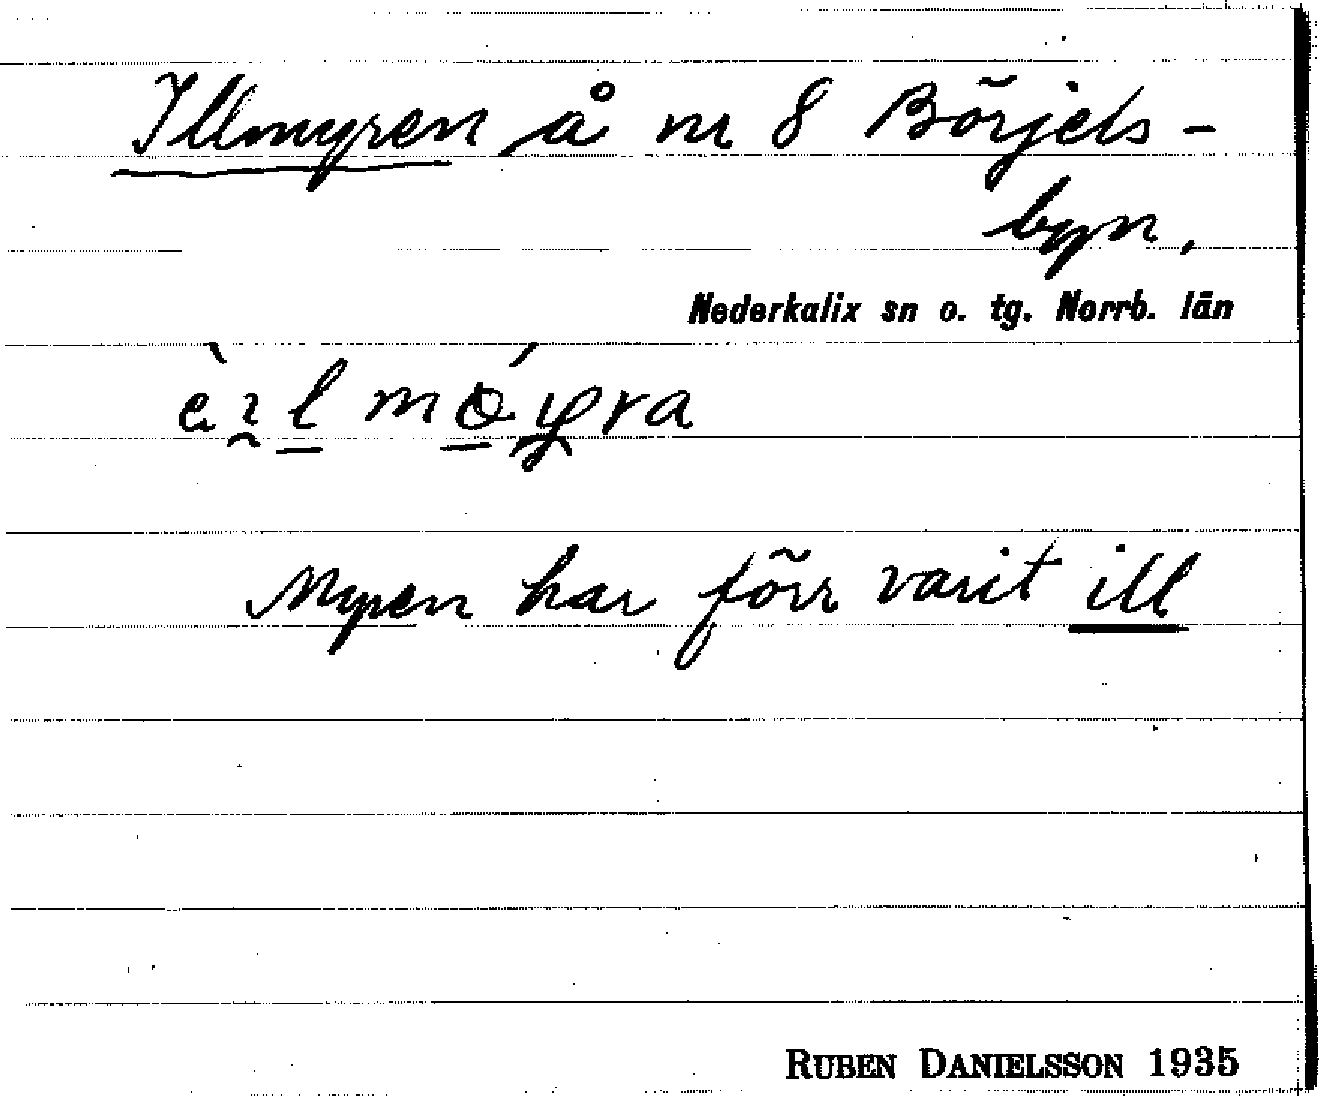 Illmyren å nr 8 Börjels-
byn.
Nederkalix sn o. tg. Norrb. län
Myren har förr varit ill
RUBEN DANIELSSON 1935